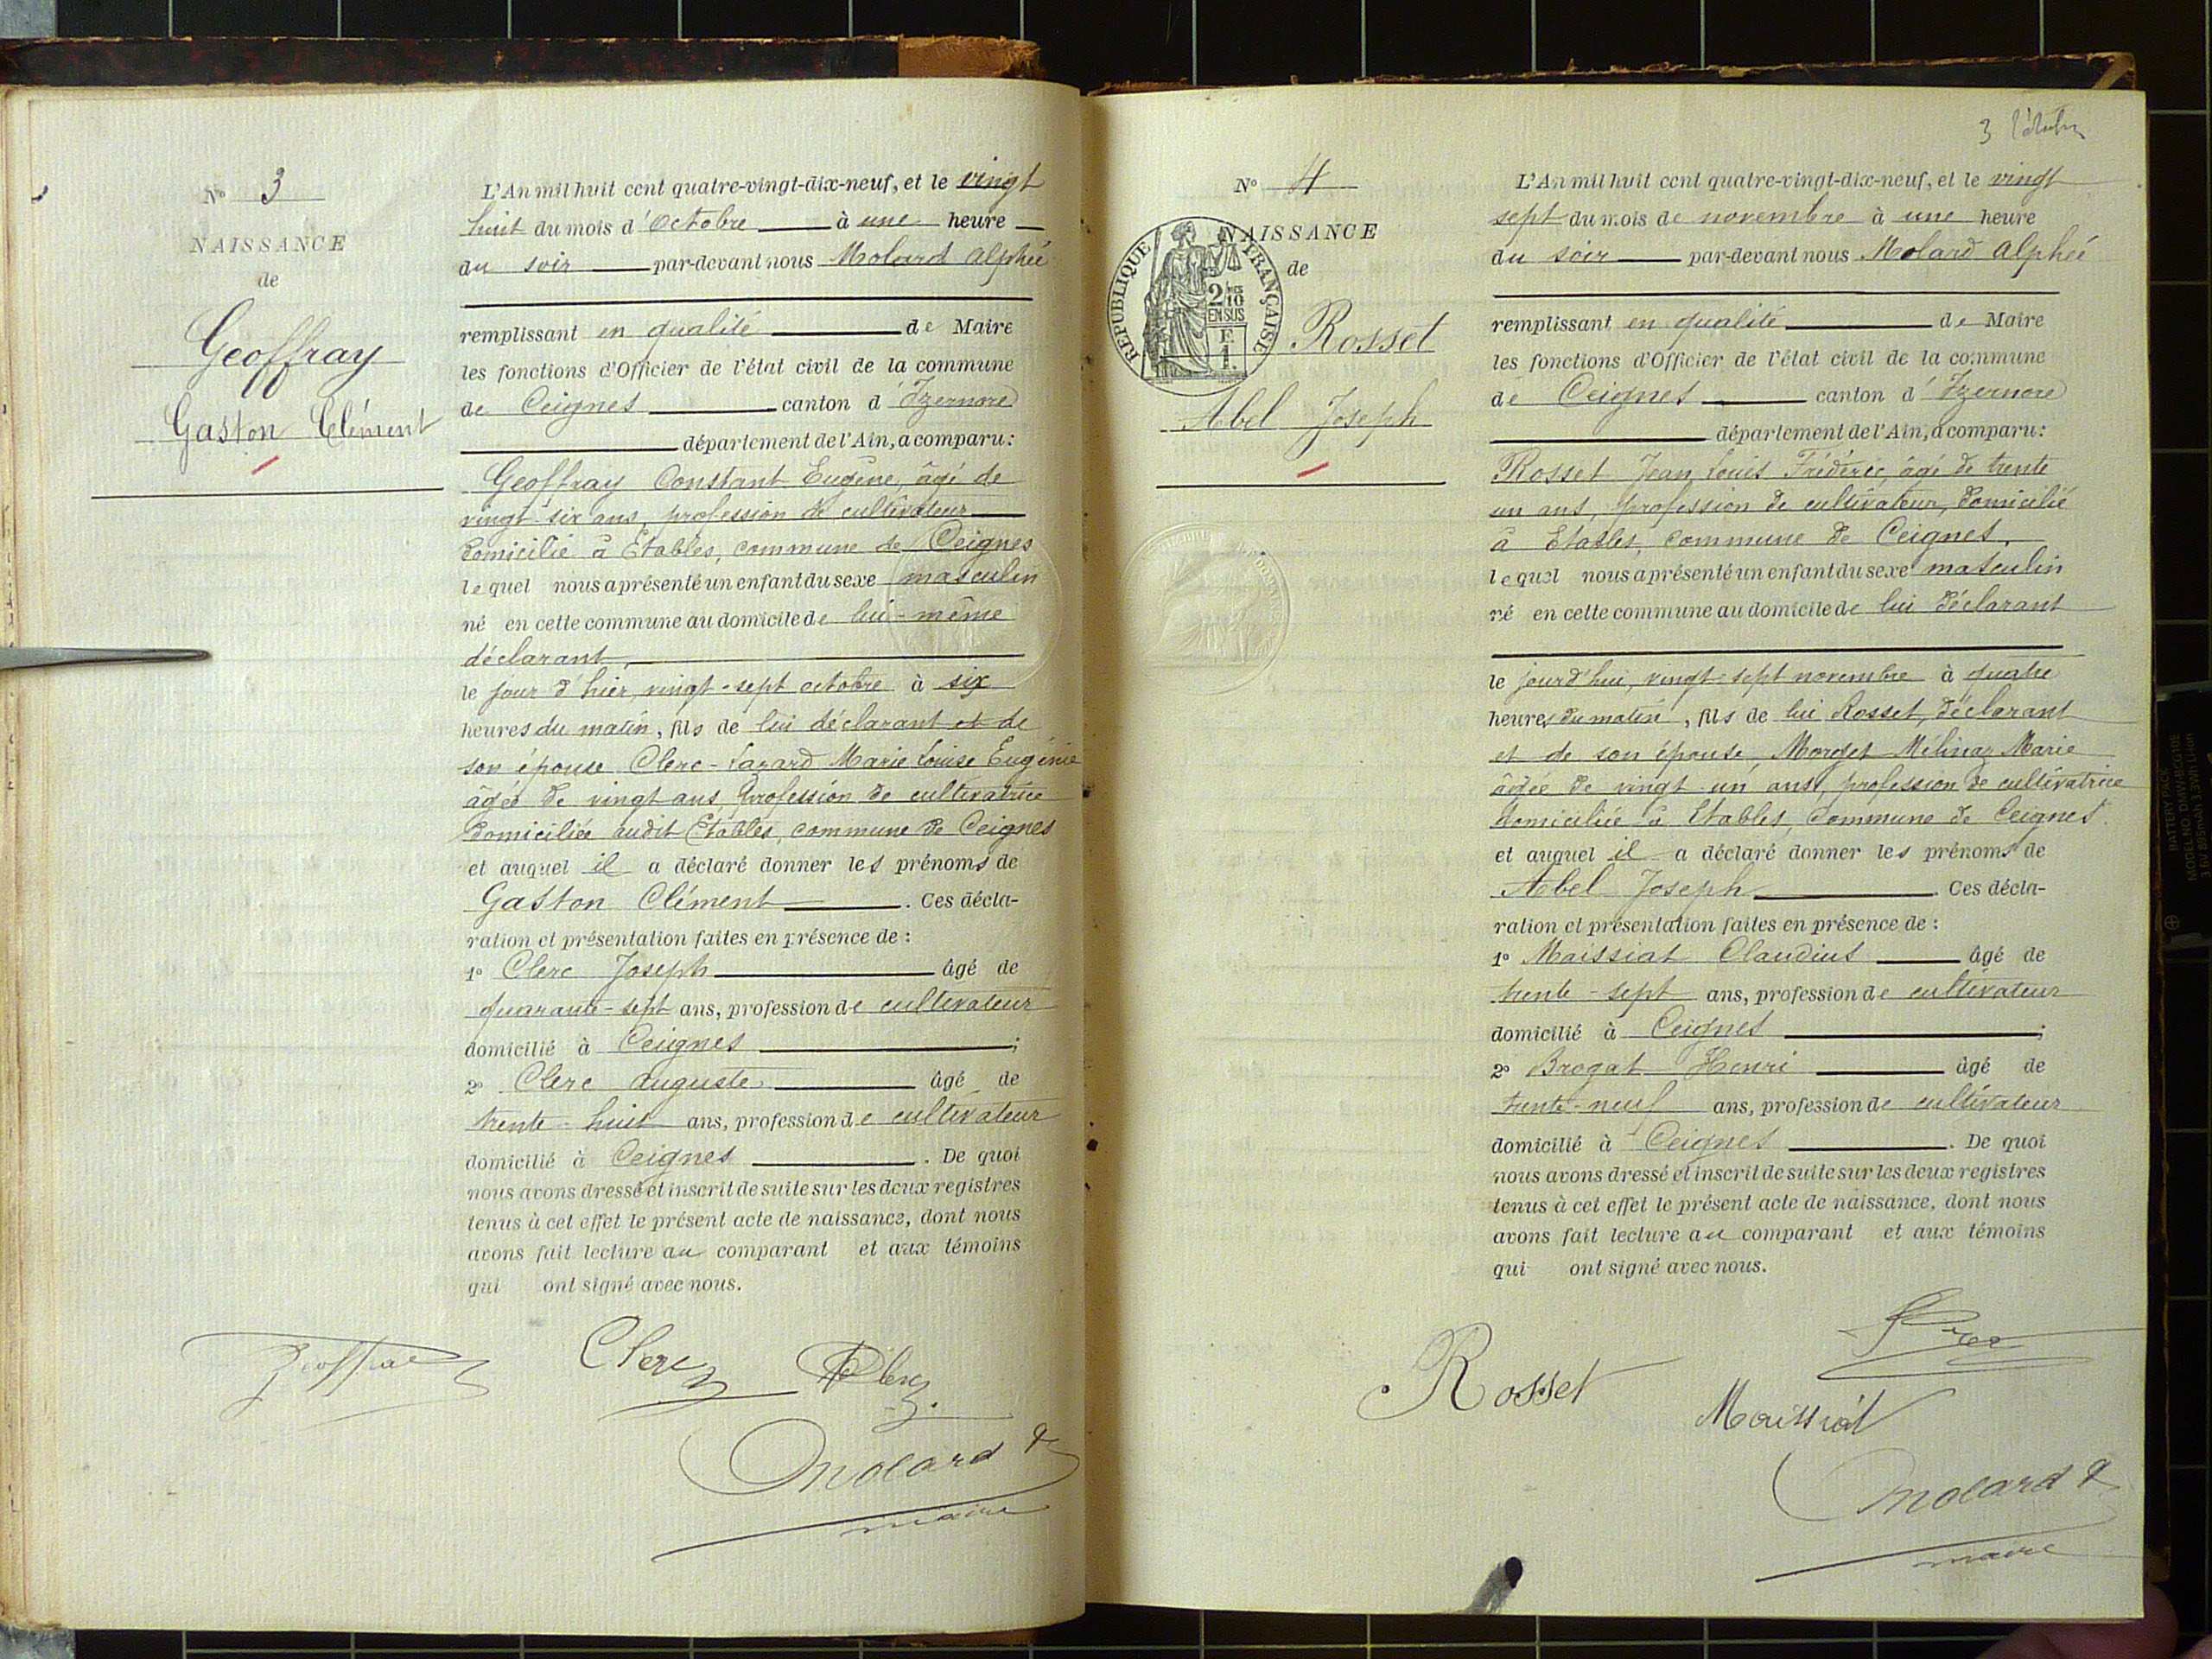 N° 3
NAISSANCE
de
Geoffray
Gaston Clément
L'An mil huit cent quatre-vingt-dix-neuf, et le vingt
huit du mois d'octobre à une heure
du soir par-devant nous Molard Alphé
remplissant en qualité de Maire
les fonctions d'Officier de l'état civil de la commune
de Ceignes canton d'Izernore
département de l'Ain, a comparu:
Geoffray Constant Eugène, âgé de
vingt-six ans, profession de cultivateur
domicilié à Etables, commune de Ceignes
lequel nous a présenté un enfant du sexe masculin
né en cette commune au domicile de lui-même
déclarant,
le jour d'hier, vingt-sept octobre à six
heures du matin, fils de lui déclarant et de
son épouse Clerc-Lazard Marie Louise Eugénie
âgée de vingt ans, profession de cultivatrice
domiciliée audit Etables, commune de Ceignes
et auquel il a déclaré donner les prénoms de
Gaston Clément. Ces décla-
ration et présentation faites en présence de :
1° Clerc Joseph âgé de
quarante-sept ans, profession de cultivateur
domicilié à Ceignes ;
2° Clerc Auguste âgé de
trente-huit ans, profession de cultivateur
domicilié à Ceignes. De quoi
nous avons dressé et inscrit de suite sur les deux registres
tenus à cet effet le présent acte de naissance, dont nous
avons fait lecture au comparant et aux témoins
qui ont signé avec nous.
Geoffray
Clerc
Clerc
Molard A
maire
3
N° 4
NAISSANCE
de
RÉPUBLIQUE FRANÇAISE
2/10
EN SUS
F.
1.
Rosset
Abel Joseph
L'An mil huit cent quatre-vingt-dix-neuf, et le vingt
sept du mois de novembre à une heure
du soir par-devant nous Molard Alphé
remplissant en qualité de Maire
les fonctions d'Officier de l'état civil de la commune
de Ceignes canton d'Izernore
département de l'Ain, a comparu:
Rosset Jean Louis Frédéric, âgé de trente
un ans, profession de cultivateur, domicilié
à Etables, commune de Ceignes,
lequel nous a présenté un enfant du sexe masculin
né en cette commune au domicile de lui déclarant
le jourd'hui, vingt-sept novembre à quatre
heures du matin, fils de lui Rosset, déclarant
et de son épouse, Morget Mélinaz Marie
âgée de vingt un ans, profession de cultivatrice
domiciliée à Etables, commune de Ceignes.
et auquel il a déclaré donner les prénoms de
Abel Joseph. Ces décla-
ration et présentation faites en présence de :
1° Maissiat Claudius âgé de
trente-sept ans, profession de cultivateur
domicilié à Ceignes ;
2° Brogat Henri âgé de
trente-neuf ans, profession de cultivateur
domicilié à Ceignes. De quoi
nous avons dressé et inscrit de suite sur les deux registres
tenus à cet effet le présent acte de naissance, dont nous
avons fait lecture au comparant et aux témoins
qui ont signé avec nous.
Rosset
Maissiat
Molard A
maire
BATTERY PACK